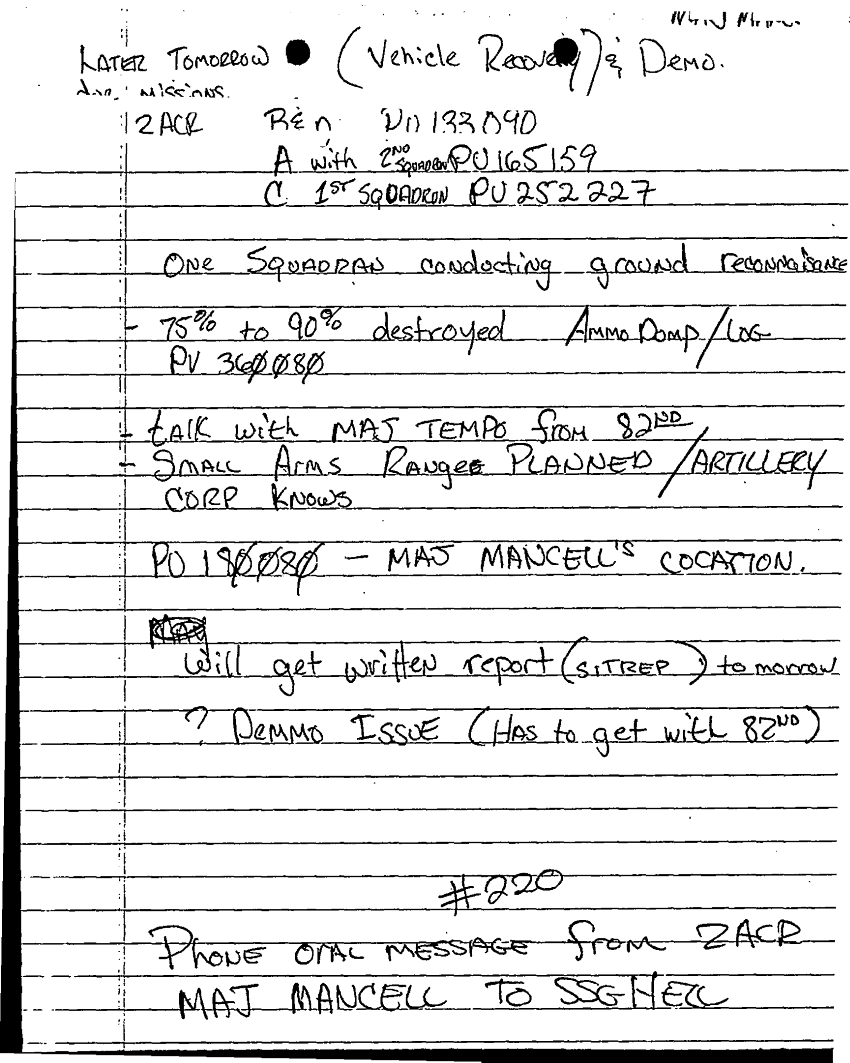 LATER TOMORROW (Vehicle Recovery) & DEMO.
MISSIONS.
2ACR R&R 133090
A with 2ND SQUADRON PU 165159
C 1ST SQUADRON PU 252227
ONE SQUADRAN conducting ground reconnaisance
- 75% to 90% destroyed AMMO DOMP/LOG
PV 360080
- tALK with MAJ TEMPO from 82ND
- SMALL ARMS RANGE PLANNED /ARTILLERY
CORP KNOWS
PU 180080 - MAJ MANCELL'S LOCATION.
Will get written report (SITREP) tomorrow
? DEMMO ISSUE (HAS to get with 82ND)
#220
PHONE ORAL MESSAGE from 2ACR
MAJ MANCELL TO SSG HELL